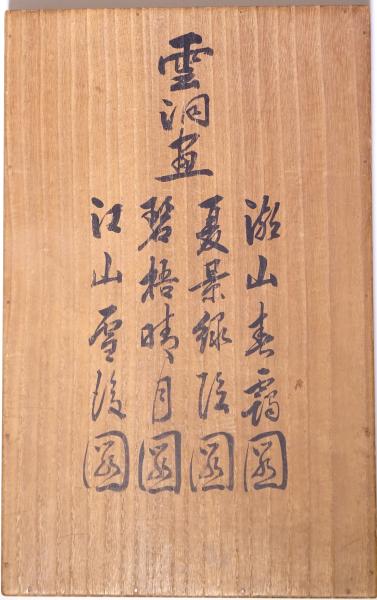 雲洞画
湖山春靄図
夏景緑陰図
碧梧晴月図
江山雪後図